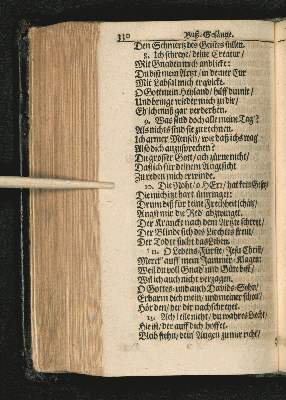 330 Buß-Gesänge.
Den Schmertz des Geistes stillen.
8. Ich schreye / deine Creatur /
Mit Gnaden mich anblicke:
Du bist mein Artzt / in deiner Cur
Mit Labsal mich erquicke.
O Gott mein Heyland / hilff du mir /
Und bringe wieder mich zu dir /
Eh ich muß gar verderben.
9. Was sind doch alle meine Tag?
Als nichts sind sie zu rechnen.
Ich armer Mensch / wie daß ichs wag
Also dich anzusprechen?
Du grosser Gott / ach zürne nicht /
Daß ich für deinem Angesicht
Zu reden mich erwinde.
10. Die Noht / o HErr / hat kein Gesetz
Die mich itzt hart umringet:
Drum diß für keine Frechheit schätz /
Angst mir die Red abzwinget.
Der Kranck nach dem Artzte schreyt /
Der Blinde sich des Liechtes freut /
Der Todte sucht das Leben.
11. O Lebens-Fürste / Jesu Christ /
Merck auff mein Jammer-Klagen:
Weil du voll Gnad und Güte bist /
Wil ich auch nicht verzagen.
O Gottes- und auch Davids-Sohn /
Erbarm dich mein / und meiner schon /
Hör den / der dir nachschreyet.
12. Ach! eile nicht / du wahres Licht /
Hie ist / der auff dich hoffet.
Bleib stehn / dein Augen zu mir richt /